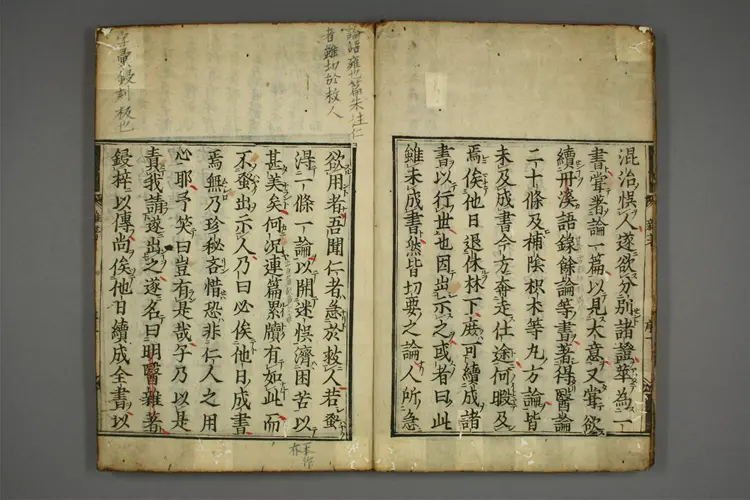 混治悞人遂欲分別諸證華為一
書嘗著論一篇以見大意又嘗欲
續丹溪語錄餘論等書著得醫論
二十條及補陰枳术等丸方論皆
未及成書今方奔走仕途何暇及
焉俟他日退休林下庶可續成諸
書以行世也因出示之或者曰此
雖未成書然皆切要之論人所急
論語雍也篇朱注仁
者雖切於救人
欲用者吾聞仁者急於救人若蚤
淂二條一論以開迷悞濟困苦以
甚美矣何況連篇累牘有如此而
不蚤出示人乃曰必俟他日成書
焉無乃珍秘吝惜恐非仁人之用
心耶予笑曰豈有是哉子乃以是
責我請遂出之遂名曰明醫雜著
鋟梓以傳尚俟他日續成全書以
字彙鋟刻板也